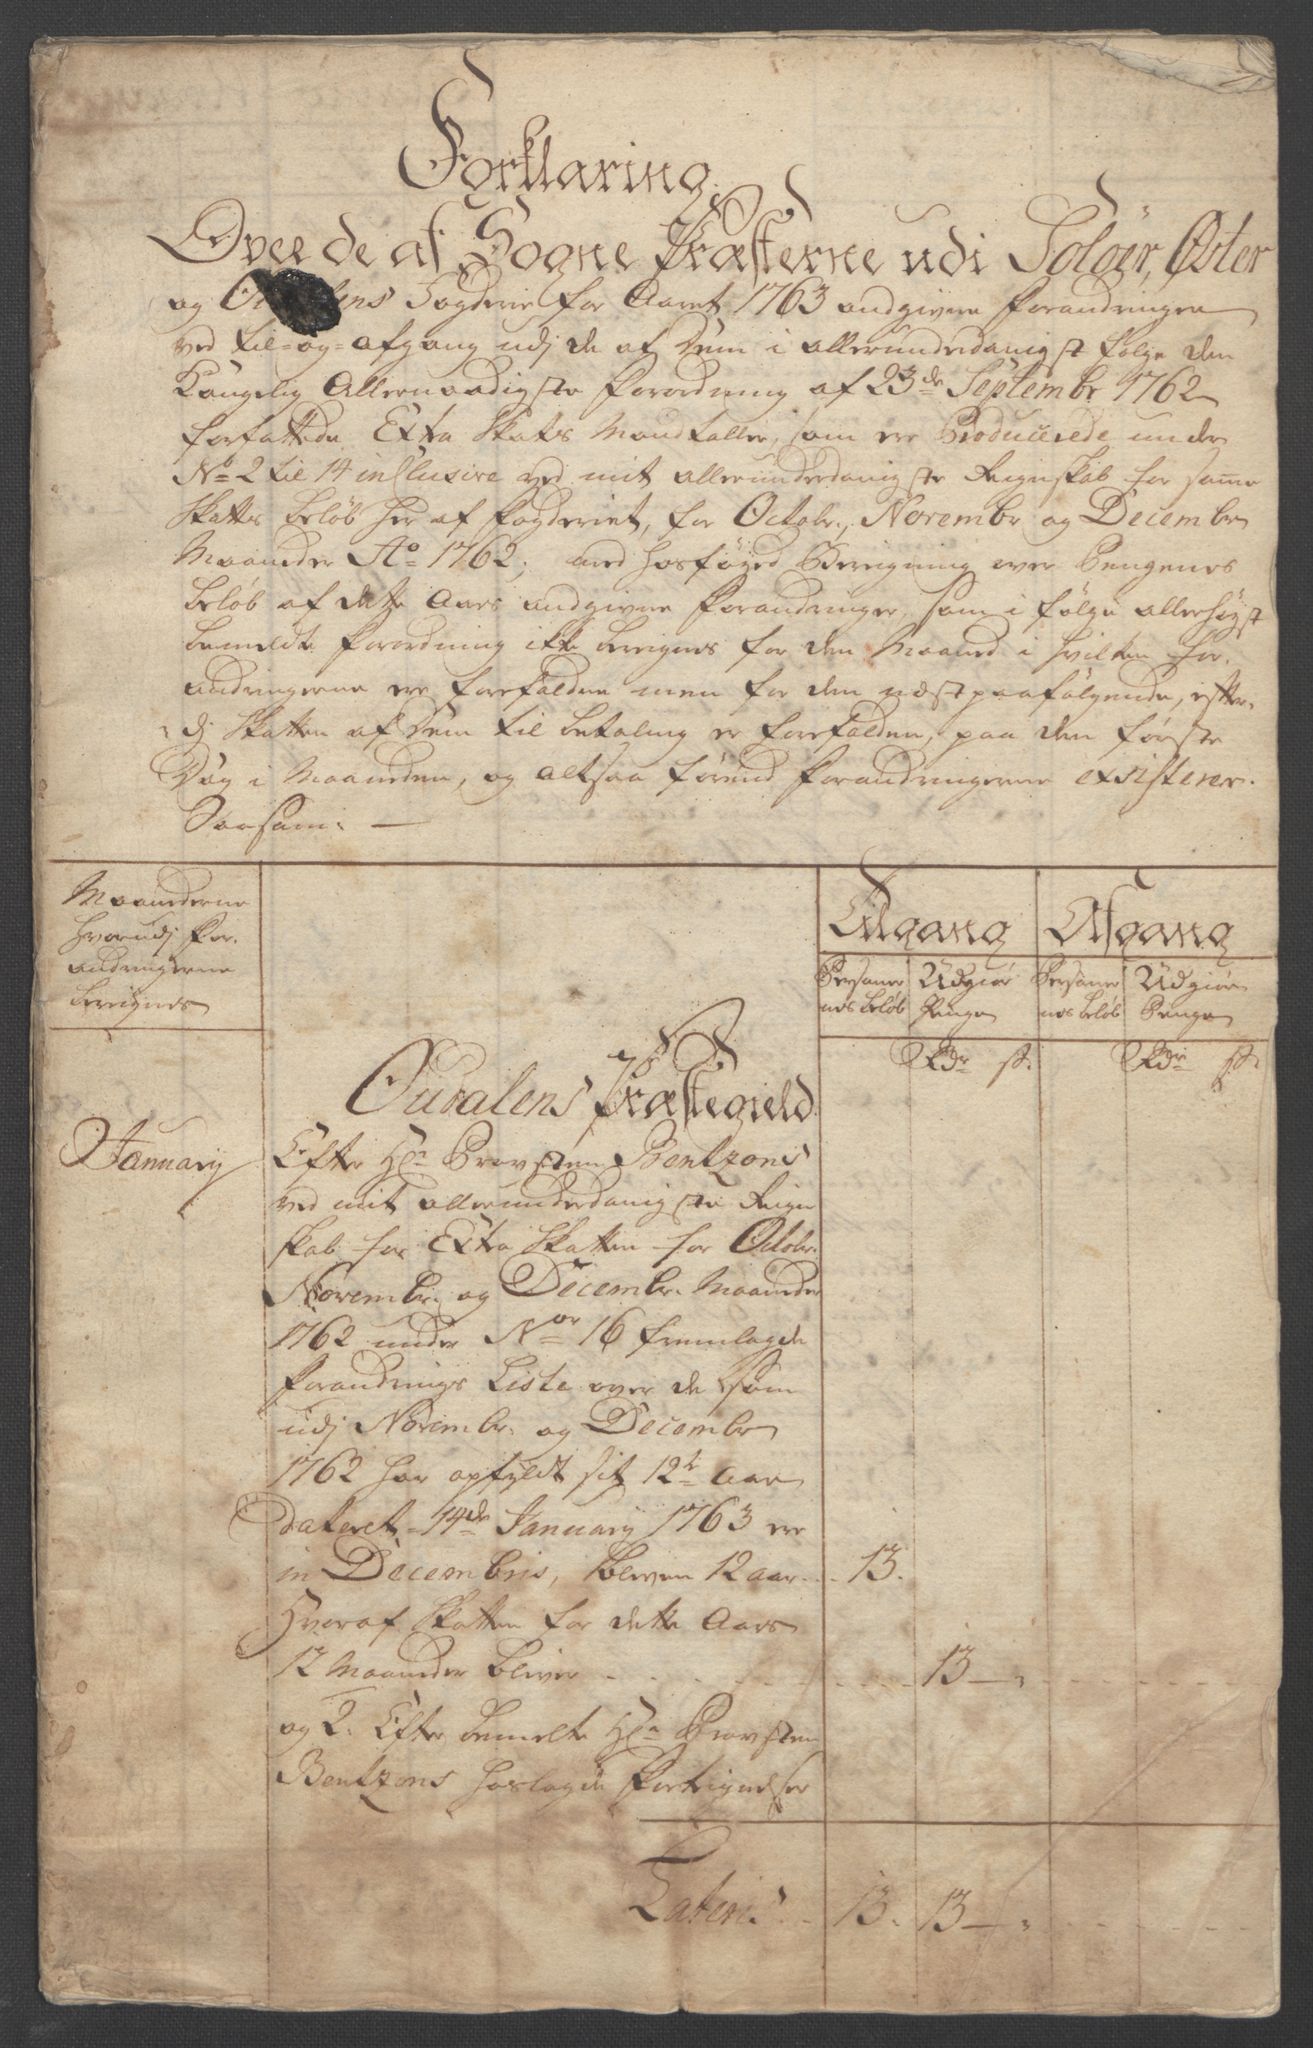 Forklaring
Over de af Sogne Præsterne udi Soloer, Øster
og Ou dalens Fogderie for Aaret 1763 andgivne Forandringer
ved til- og- afgang udj de af dem i allerunderdanigst følge den
Kongelig Allernaadigste Forordning af 23de Septembr 1762
forfattede Extra Skats Mandtaller, som ere Producerede under
No 2 til 14 inclusive ved mit allerunderdanigste Regnskab for samme
Skatts beløb her af Fogderiet, for Octobr., Novembr og Decembr
Maaneder Ao 1762; med hosføyed Beregning over Pengenes
beløb af dette Aars andgivne Forandringer, som i følge allerhøyst
bemeldte Forordning ikke beregnes for den Maaned i hvilken for-
andringerne ere forefaldne men for den næstpaafølgende, efter-
dj Skatten af dem til betaling er forefalden, paa den første
Dag i Maaneden, og altsaa førend Forandringerne existerer.
Saasom:
Maanederne
hvorudj For-
andringerne
beregnes
Tilgang
Afgang
Personer
nes beløb
Udgiør
Penge
Personer
nes beløb
Udgiør
Penge
Rdr s.
Rdr s.
Oudalens Præstegield
January
Efter Hr Provsten Bentzons
ved mit allerunderdanigste Regn
skab for Extra Skatten for Octobr.
Novembr. og Decembr. Maaneder
1762 under Nor 16 fremlagde
Forandrings Liste over de som
udj Novembr. og Decembr
1762 har opfyldt sit 12te Aar
dateret 14de January 1763 ere
in Decembris, bleven 12 aar 13.
Hvoraf Skatten for dette Aars
12 Maaneder bliver 13 —
og 2. Efter bemelte Hr Provsten
Bentzons hoslagde Fortegnelser
Lateris 13. 13 —